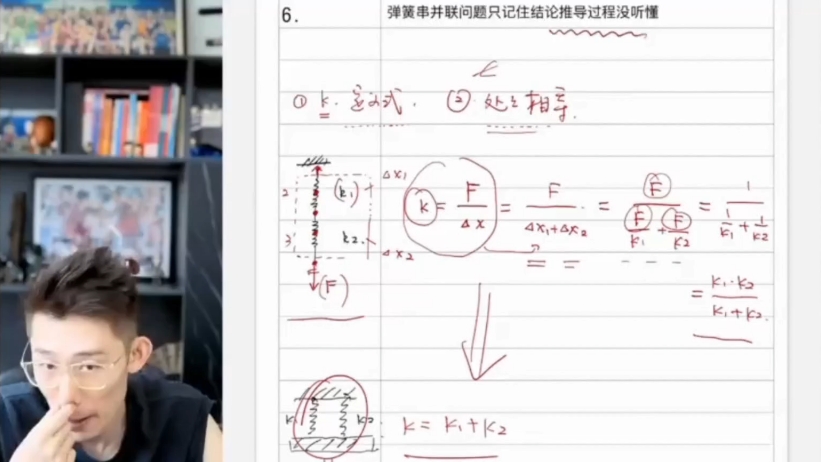 6.
弹簧串并联问题只记住结论推导过程没听懂
① k. 定义式. ② 处处相等.
Δx₁
2 (k₁) k = F/Δx = F/(Δx₁+Δx₂) = F/(F/k₁+F/k₂) = 1/(1/k₁+1/k₂)
3 k₂
Δx₂
(F)
= k₁·k₂/(k₁+k₂)
k₁ k₂ k = k₁+k₂